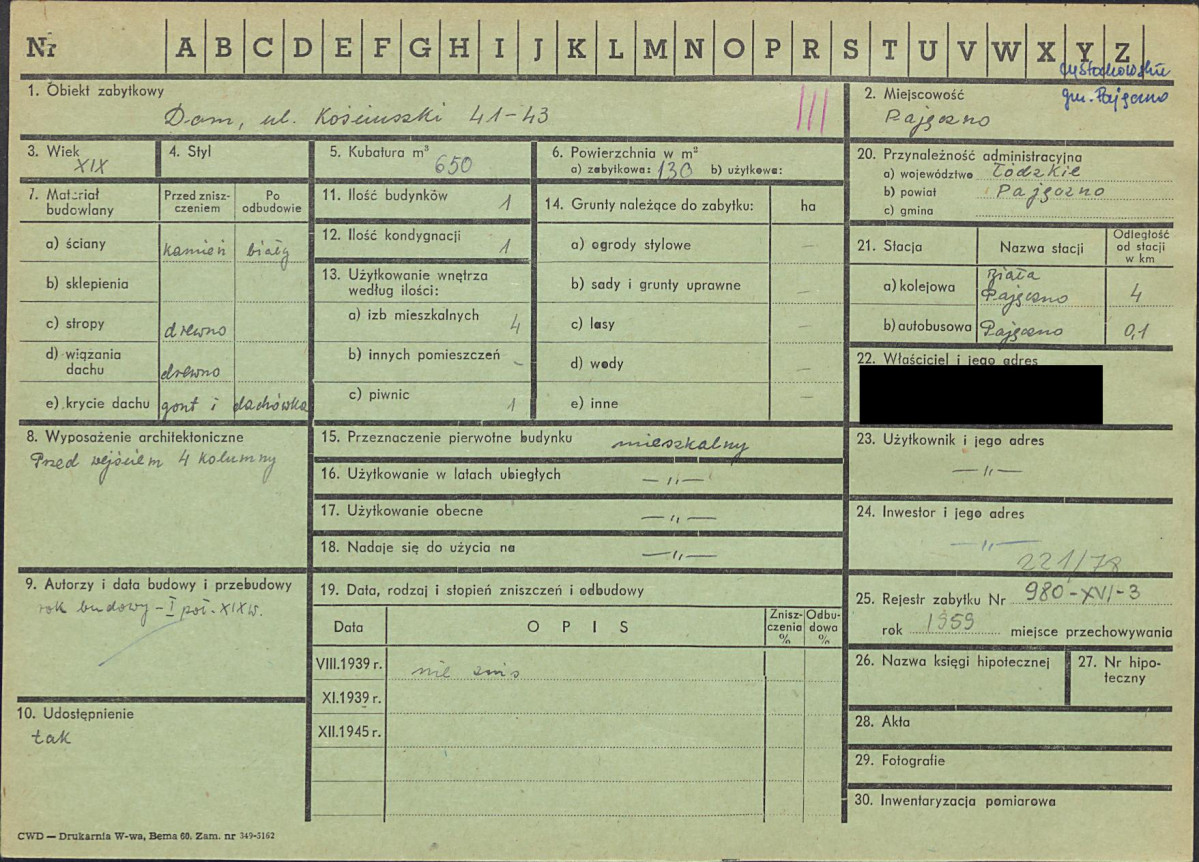 Nr A B C D E F G H I J K L M N O P R S T U V W X Y Z
gm. Pajęczno
1. Obiekt zabytkowy
Dom, ul. Kościuszki 41-43
III
2. Miejscowość
Pajęczno
3. Wiek
XIX
4. Styl
5. Kubatura m³
650
6. Powierzchnia w m²
a) zabytkowa: 130 b) użytkowa:
20. Przynależność administracyjna
a) województwo Łódzkie
b) powiat Pajęczno
c) gmina
7. Materiał budowlany
Przed zniszczeniem
Po odbudowie
a) ściany kamień biały
b) sklepienia
c) stropy drewno
d) wiązania dachu drewno
e) krycie dachu gont i dachówka
11. Ilość budynków 1
12. Ilość kondygnacji 1
13. Użytkowanie wnętrza
według ilości:
a) izb mieszkalnych 4
b) innych pomieszczeń -
c) piwnic 1
14. Grunty należące do zabytku: ha
a) ogrody stylowe —
b) sady i grunty uprawne —
c) lasy —
d) wody —
e) inne —
21. Stacja Nazwa stacji Odległość od stacji w km
a) kolejowa Biała Pajęczno 4
b) autobusowa Pajęczno 0,1
22. Właściciel i jego adres
8. Wyposażenie architektoniczne
Przed wejściem 4 kolumny
15. Przeznaczenie pierwotne budynku mieszkalny
16. Użytkowanie w latach ubiegłych — " —
17. Użytkowanie obecne — " —
18. Nadaje się do użycia na — " —
23. Użytkownik i jego adres
— " —
24. Inwestor i jego adres
— " —
221/78
9. Autorzy i data budowy i przebudowy
rok budowy - I poł. XIX w.
19. Data, rodzaj i stopień zniszczeń i odbudowy
Data O P I S Zniszczenia % Odbudowa %
VIII.1939 r. nie znis
XI.1939 r.
XII.1945 r.
25. Rejestr zabytku Nr 980-XVI-3
rok 1959 miejsce przechowywania
26. Nazwa księgi hipotecznej
27. Nr hipoteczny
10. Udostępnienie
tak
28. Akta
29. Fotografie
30. Inwentaryzacja pomiarowa
CWD — Drukarnia W-wa, Bema 60. Zam. nr 349-5162